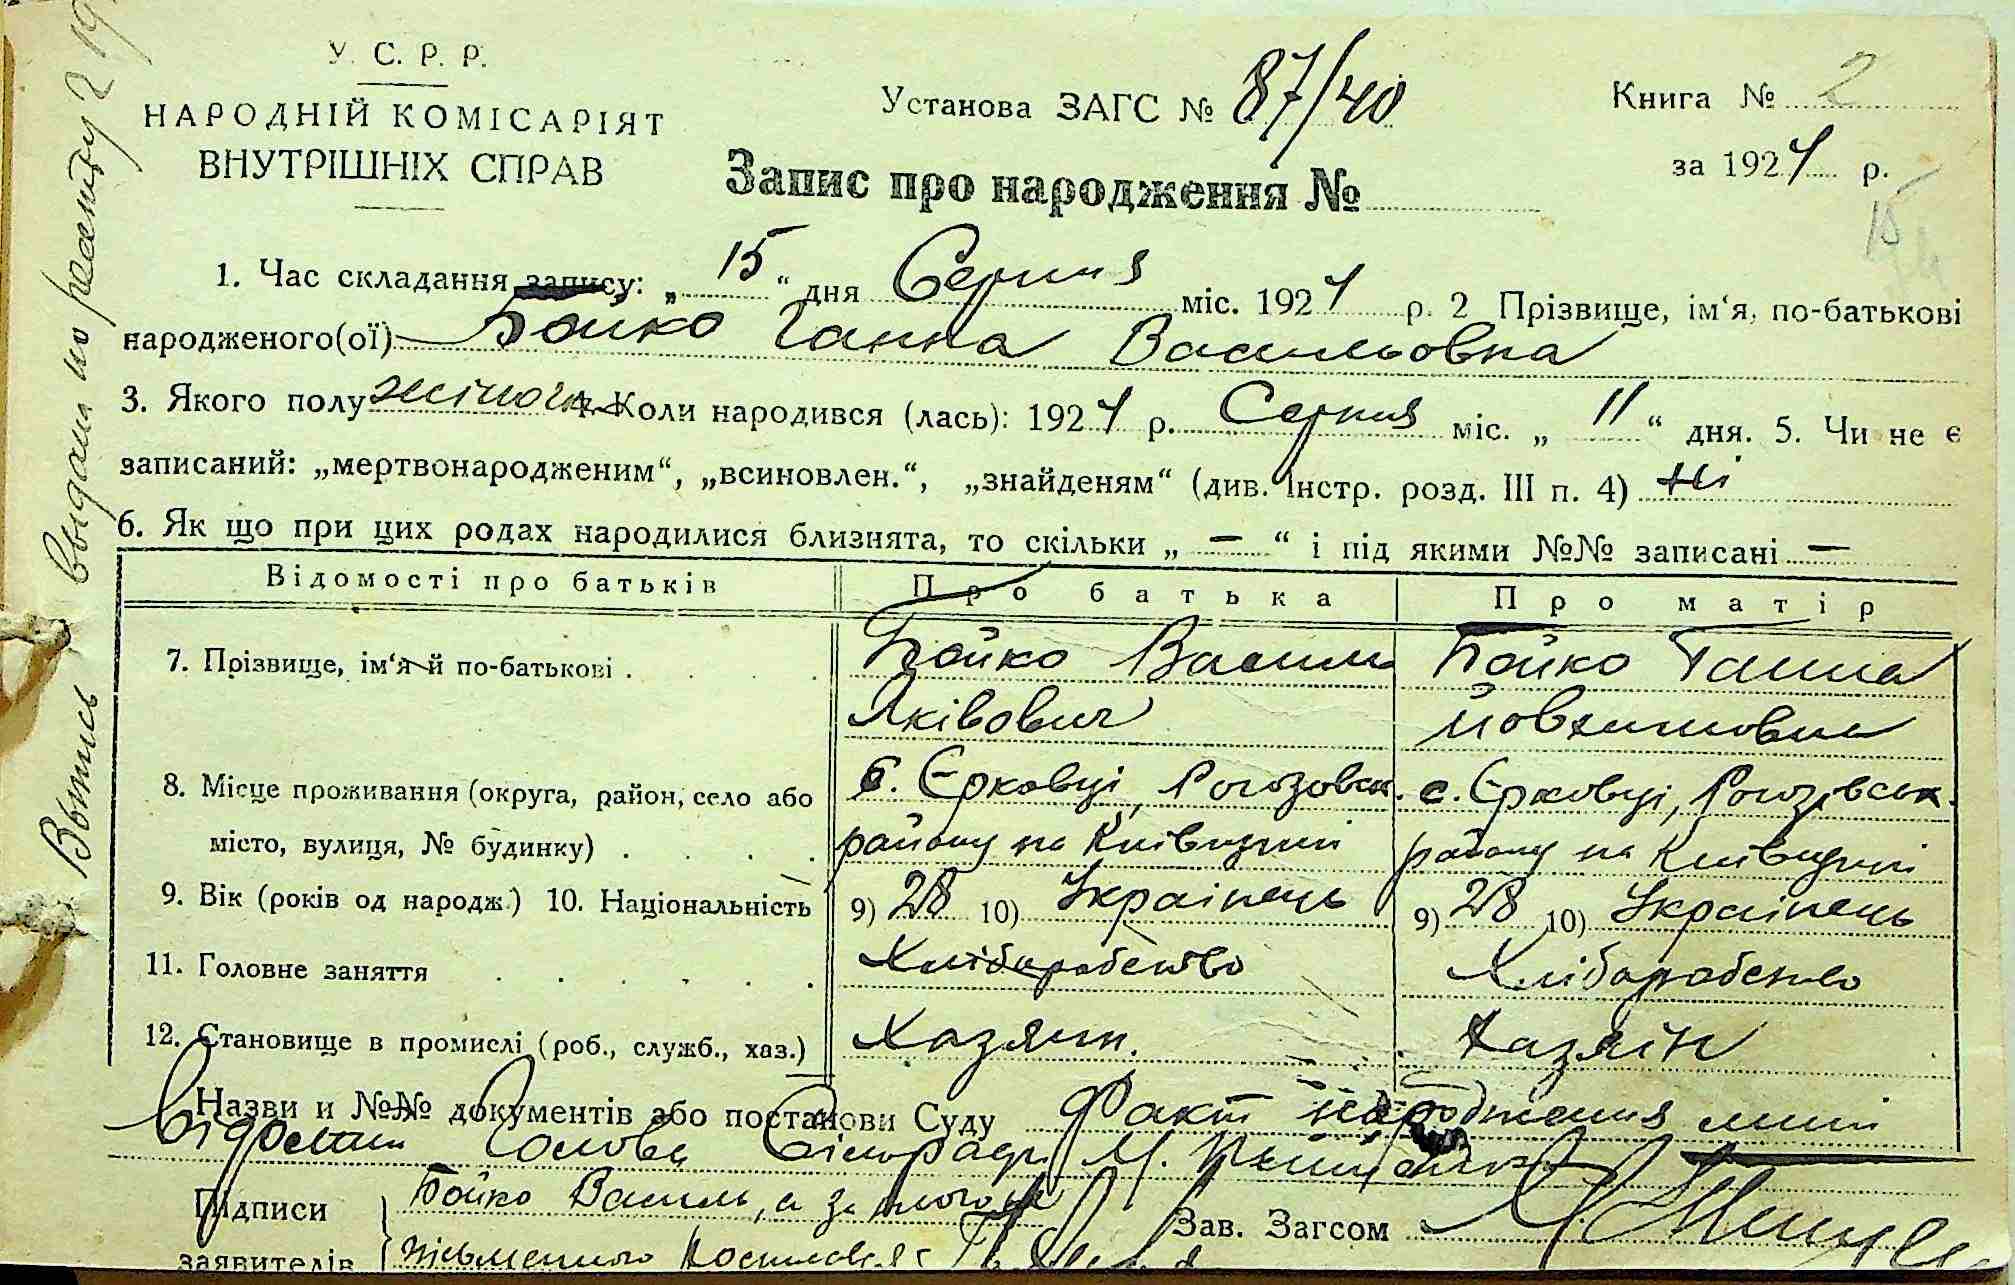 У. С. Р. Р.
НАРОДНІЙ КОМІСАРІЯТ
ВНУТРІШНІХ СПРАВ
Установа ЗАГС № 87/40
Книга № 2
за 1924 р.
Запис про народження №
15
1. Час складання запису: „ 15 “ дня Серпня міс. 1924 р. 2 Прізвище, ім‘я, по-батькові
народженого(ої) Бойко Ганна Васильовна
3. Якого полу жіноч. 4. Коли народився (лась): 1924 р. Серпня міс. „ 11 “ дня. 5. Чи не є
записаний: „мертвонародженим“, „всиновлен.“, „знайденям“ (див. Інстр. розд. III п. 4) Ні
6. Як що при цих родах народилися близнята, то скільки „ — “ і під якими №№ записані —
Відомості про батьків Про батька Про матір
7. Прізвище, ім‘я й по-батькові . . . . Бойко Василь Бойко Ганна
Яківович
8. Місце проживання (округа, район, село або с. Єрковці, Рогозовск. с. Єрковці, Рогозівськ.
місто, вулиця, № будинку) . . . . району на Київщині району на Київщині
9. Вік (років од народж.) 10. Національність 9) 28 10) Українець 9) 28 10) Українець
11. Головне заняття . . . . . . Хліборобство Хліборобство
12. Становище в промислі (роб., служб., хаз.) Хазяин. Хазяїн
Назви и №№ документів або постанови Суду Факт народження мині
відомий Голова Сільради
Підписи Бойко Василь, а за нього не
Зав. Загсом
заявителів письменного
Выпись выдана по